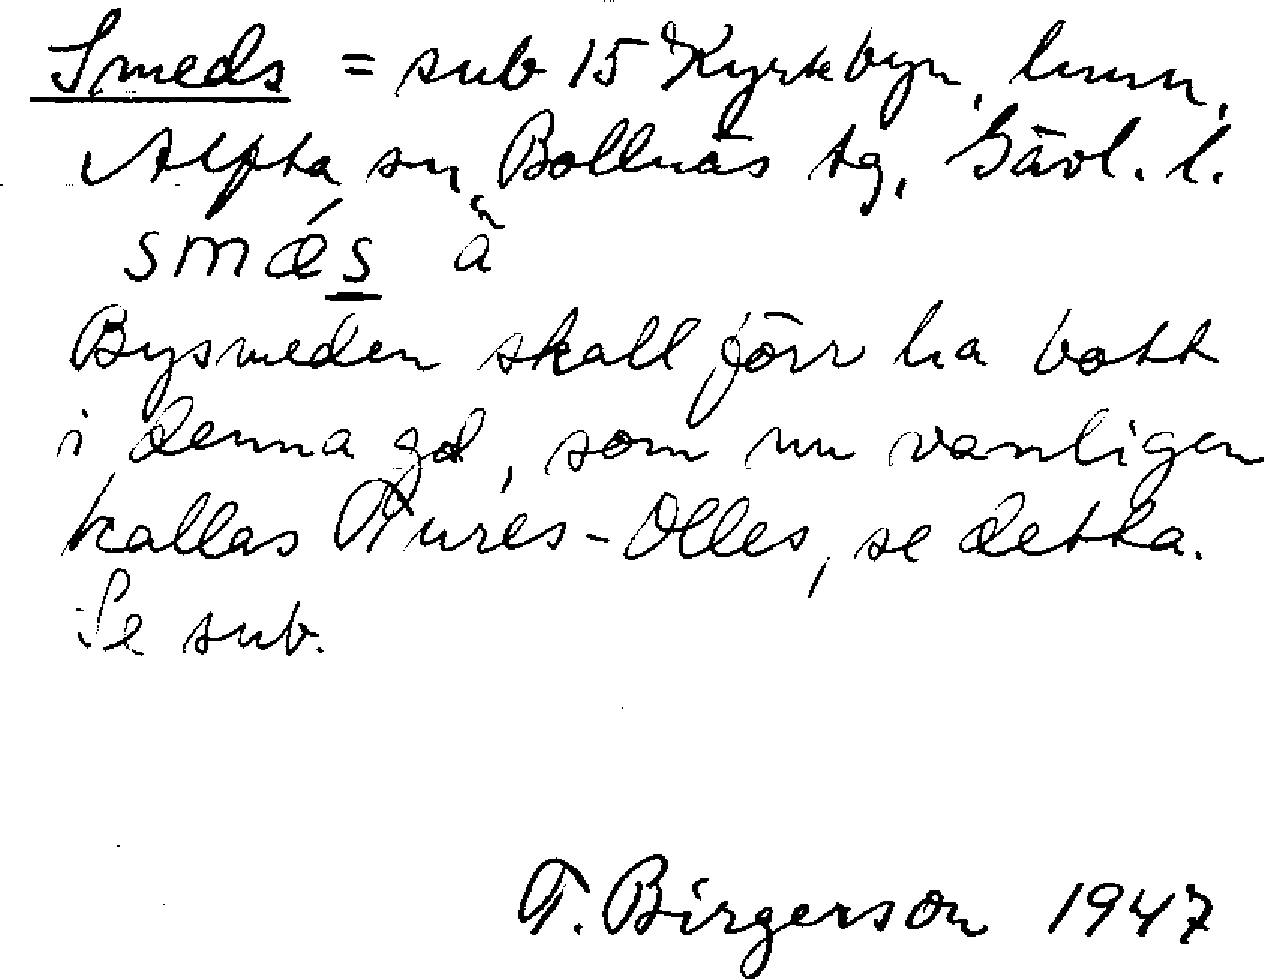 Smeds = sub 15 Kyrkbyn, hmn,
Alfta sn, Bollnäs tg, Gävl. l.
smǽs å
Bysmeden skall förr ha bott
i denna gd, som nu vanligen
kallas Tures-Olles, se detta.
Se sub.
T. Birgerson 1947